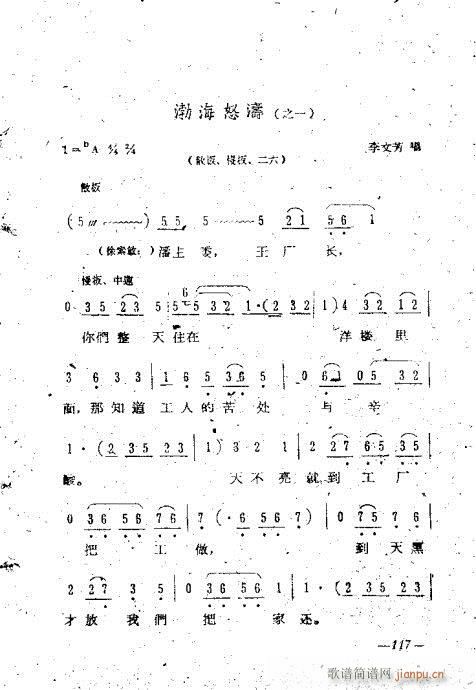 渤海怒濤(之一)
1=ᵇA 4/4 2/4
(散板、慢板、二六)
李文芳 唱
散板
(5 〃〃 ~~~~) 5 5 5 ~~~~ 5 2 1 5 6 1
(徐索敏:)潘主委, 王厂长,
慢板、中速
0 3 5 2 3 5 6 5 5 3 2 1·(2 3 2 1) 4 3 3 2 1 2
你們整天住在 洋楼里
3 6 3 3 1 6 5 3 5 0 6 1 0 5 3 2
面,那知道工人的苦处 与辛
1·(2 3 5 2 3 1) 3 2 1 2 2 7 6 5 3 5
酸。 天不亮就到工厂
0 3 6 5 6 7 6 7(·6 5 6 3 5 6 7) 0 7 5 7 6
把工做, 到天黑
2 2 7 3 5 0 5 6 5 6 1 1·(2 3 5 2 3)
才放我們把家还。
—117—
歌谱简谱网
jianpu.cn